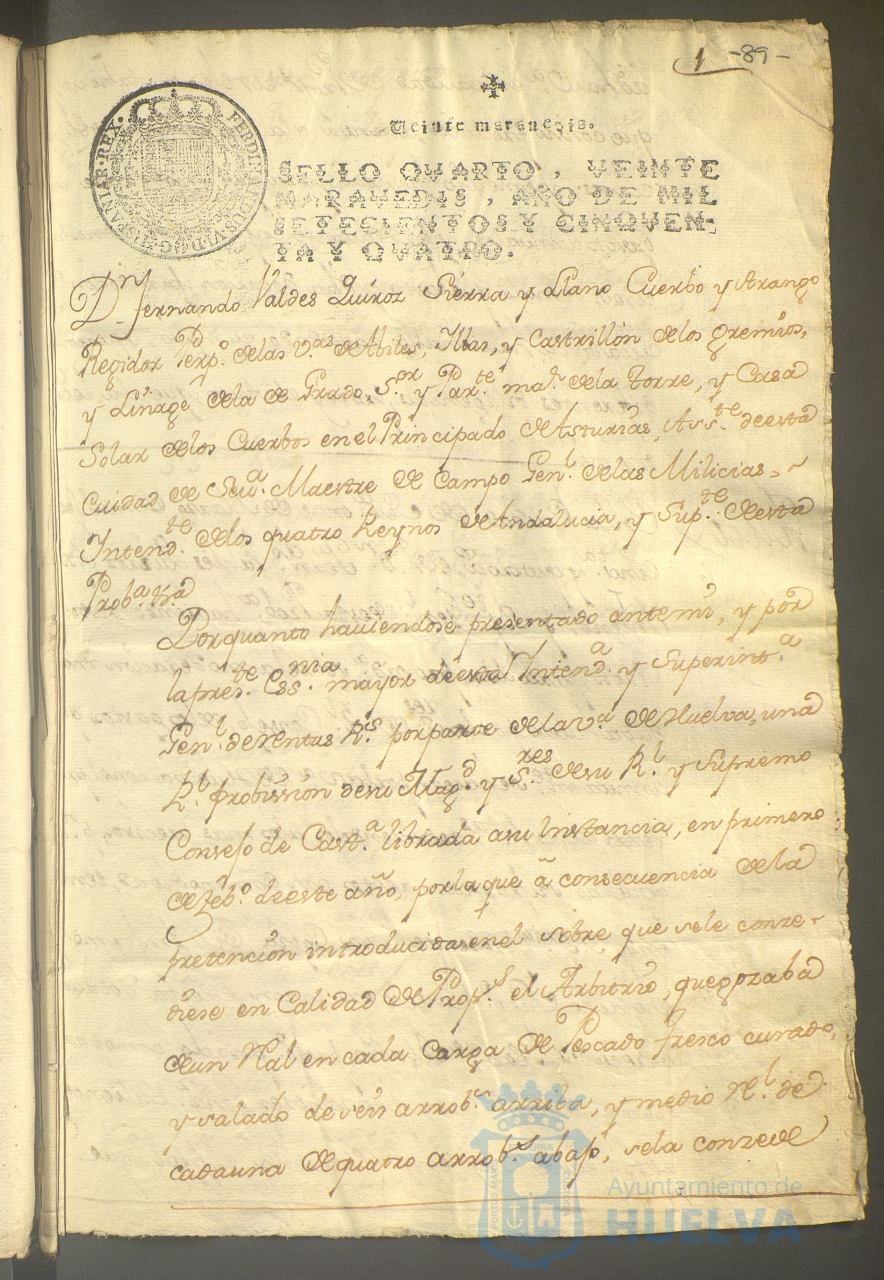 1 -89-
Veinte maravedis.
FERDINANDUS·VI·D·G·HISPANIAR·REX·
SELLO QVARTO, VEINTE
MARAVEDIS, AÑO DE MIL
SETECIENTOS Y CINQVEN-
TA Y QVATRO.
Dn Fernando Valdes Quiroz Sierra y Llano Cuerbo y Arango
Regidor Perpo. delas Vas. de Abiles, Illas, y Castrillón delos gremios,
y Linage dela de Grado, Sor y Parte. mar. dela torre, y Casa
Solar delos Cuerbos en el Principado de Asturias, Asste. de esta
Cuidad de Seva. Maestre de Campo Genl. delas Milicias
Intendte. delos quatro Reynos de Andalucia, y Supte. de esta
Proba. &a
Por quanto haviendose presentado antemi, y por
la preste. Essnia. mayor de esta Intenda. y Superinta.
Genl. de Rentas Rs. por parte dela va. de Huelva, una
Rl. probission de su Magd. y Sres. de su Rl. y Supremo
Consejo de Casta. librada a su Instancia, en primero
de Febo. de este año, por la que a consecuencia de la
pretención introducida en el sobre que se le conze-
diese en Calidad de Props. el Arbitrio, que gozaba
de un Rl. en cada Carga de Pescado fresco curado,
y salado de seis arrobs. arriba, y medio Rl. de
cada una de quatro arrobs. abajo, se la conzede
PORTUS MARIS
Ayuntamiento de
HUELVA